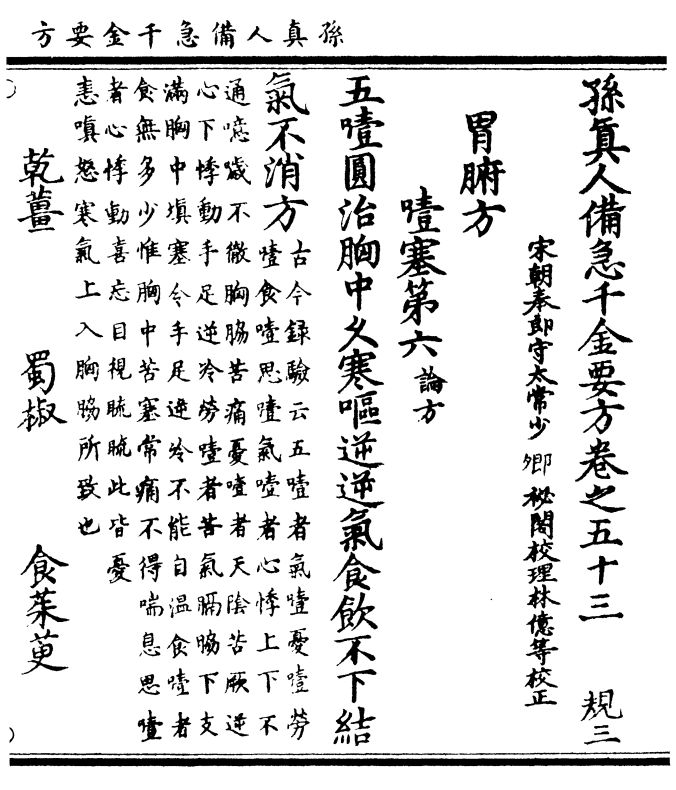 孫真人備急千金要方
孫真人備急千金要方卷之五十三 規三
宋朝奉郎守太常少卿祕閣校理林億等校正
胃腑方
噎塞第六 論方
五噎圓治胸中久寒嘔逆逆氣食飲不下結
氣不消方
古今錄驗云五噎者氣噎憂噎勞
噎食噎思噎氣噎者心悸上下不
通噫噦不徹胸脇苦痛憂噎者天陰苦厥逆
心下悸動手足逆冷勞噎者苦氣膈脇下支
滿胸中填塞令手足逆冷不能自溫食噎者
食無多少惟胸中苦塞常痛不得喘息思噎
者心悸動喜忘目視䀮䀮此皆憂
恚嗔怒寒氣上入胸脇所致也
乾薑 蜀椒 食茱萸